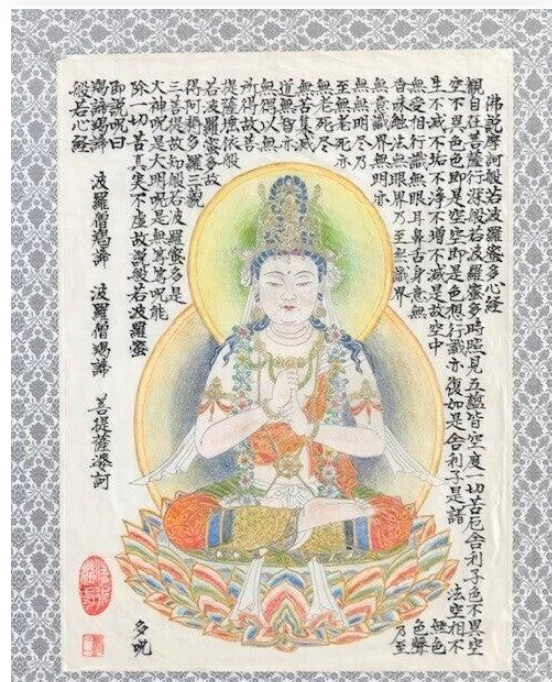 佛説摩訶般若波羅蜜多心経
觀自在菩薩行深般若波羅蜜多時照見五蘊皆空度一切苦厄舍利子色不異空
空不異色色即是空空即是色想行識亦復如是舍利子是諸法空相不
生不滅不垢不淨不増不減是故空中無色
無受相行識無眼耳鼻舌身意無色聲
香味触法無眼界乃至無識界乃至
無意識界無明亦
無無明尽乃
至無老死亦
無老死尽
無苦集滅
道無智亦
無得以無
所得故菩
提薩埵依般
若波羅蜜多故
得阿耨多羅三藐
三菩提故知般若波羅蜜多是
大神呪是大明呪是無等等呪能
除一切苦真実不虚故説般若波羅蜜多呪
即説呪曰
羯諦羯諦 波羅僧羯諦 波羅僧羯諦 菩提薩婆訶
般若心経